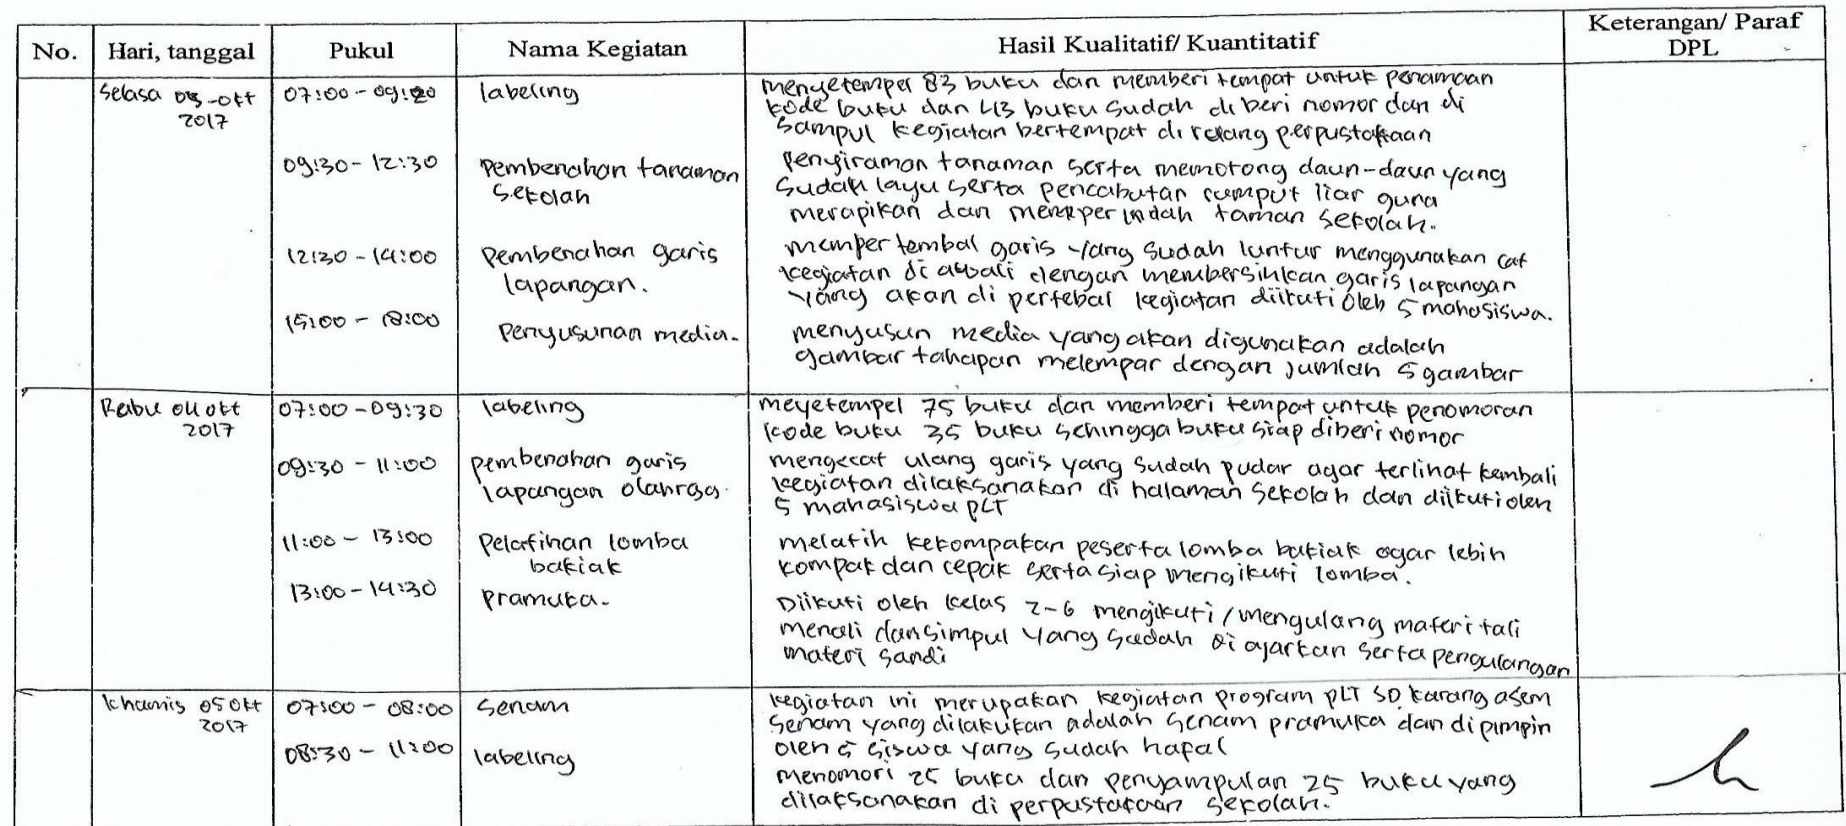 No. Hari, tanggal Pukul Nama Kegiatan Hasil Kualitatif/ Kuantitatif Keterangan/ Paraf DPL
Selasa 03-okt 2017
07:00-09:20 labeling
menyetempel 83 buku dan memberi tempat untuk penamaan
kode buku dan 43 buku sudah di beri nomor dan di
sampul kegiatan bertempat di ruang perpustakaan
09:30-12:30 Pembenahan tanaman sekolah
Penyiraman tanaman serta memotong daun-daun yang
sudah layu serta pencabutan rumput liar guna
merapikan dan memperindah taman sekolah.
12:30-14:00 Pembenahan garis lapangan.
mempertembal garis yang sudah luntur menggunakan cat
kegiatan di awali dengan membersihkan garis lapangan
yang akan di pertebal kegiatan diikuti oleh 5 mahasiswa.
15:00-18:00 Penyusunan media.
menyusun media yang akan digunakan adalah
gambar tahapan melempar dengan jumlah 5 gambar
Rabu 04 okt 2017
07:00-09:30 labeling
meyetempel 75 buku dan memberi tempat untuk penomoran
kode buku 35 buku sehingga buku siap diberi nomor
09:30-11:00 pembenahan garis lapangan olahraga.
mengecat ulang garis yang sudah pudar agar terlihat kembali
kegiatan dilaksanakan di halaman sekolah dan diikuti oleh
5 mahasiswa PLT
11:00-13:00 Pelatihan lomba bakiak
melatih kekompakan peserta lomba bakiak agar lebih
kompak dan cepak serta siap mengikuti lomba.
13:00-14:30 pramuka.
Diikuti oleh kelas 2-6 mengikuti/mengulang materi tali
menali dan simpul yang sudah di ajarkan serta pengulangan
materi sandi
khamis 05 Okt 2017
07:00-08:00 senam
kegiatan ini merupakan kegiatan program PLT SD karang asem
senam yang dilakukan adalah senam pramuka dan dipimpin
oleh 5 siswa yang sudah hafal
08:30-11:00 labeling
menomori 25 buku dan penyampulan 25 buku yang
dilaksanakan di perpustakaan sekolah.